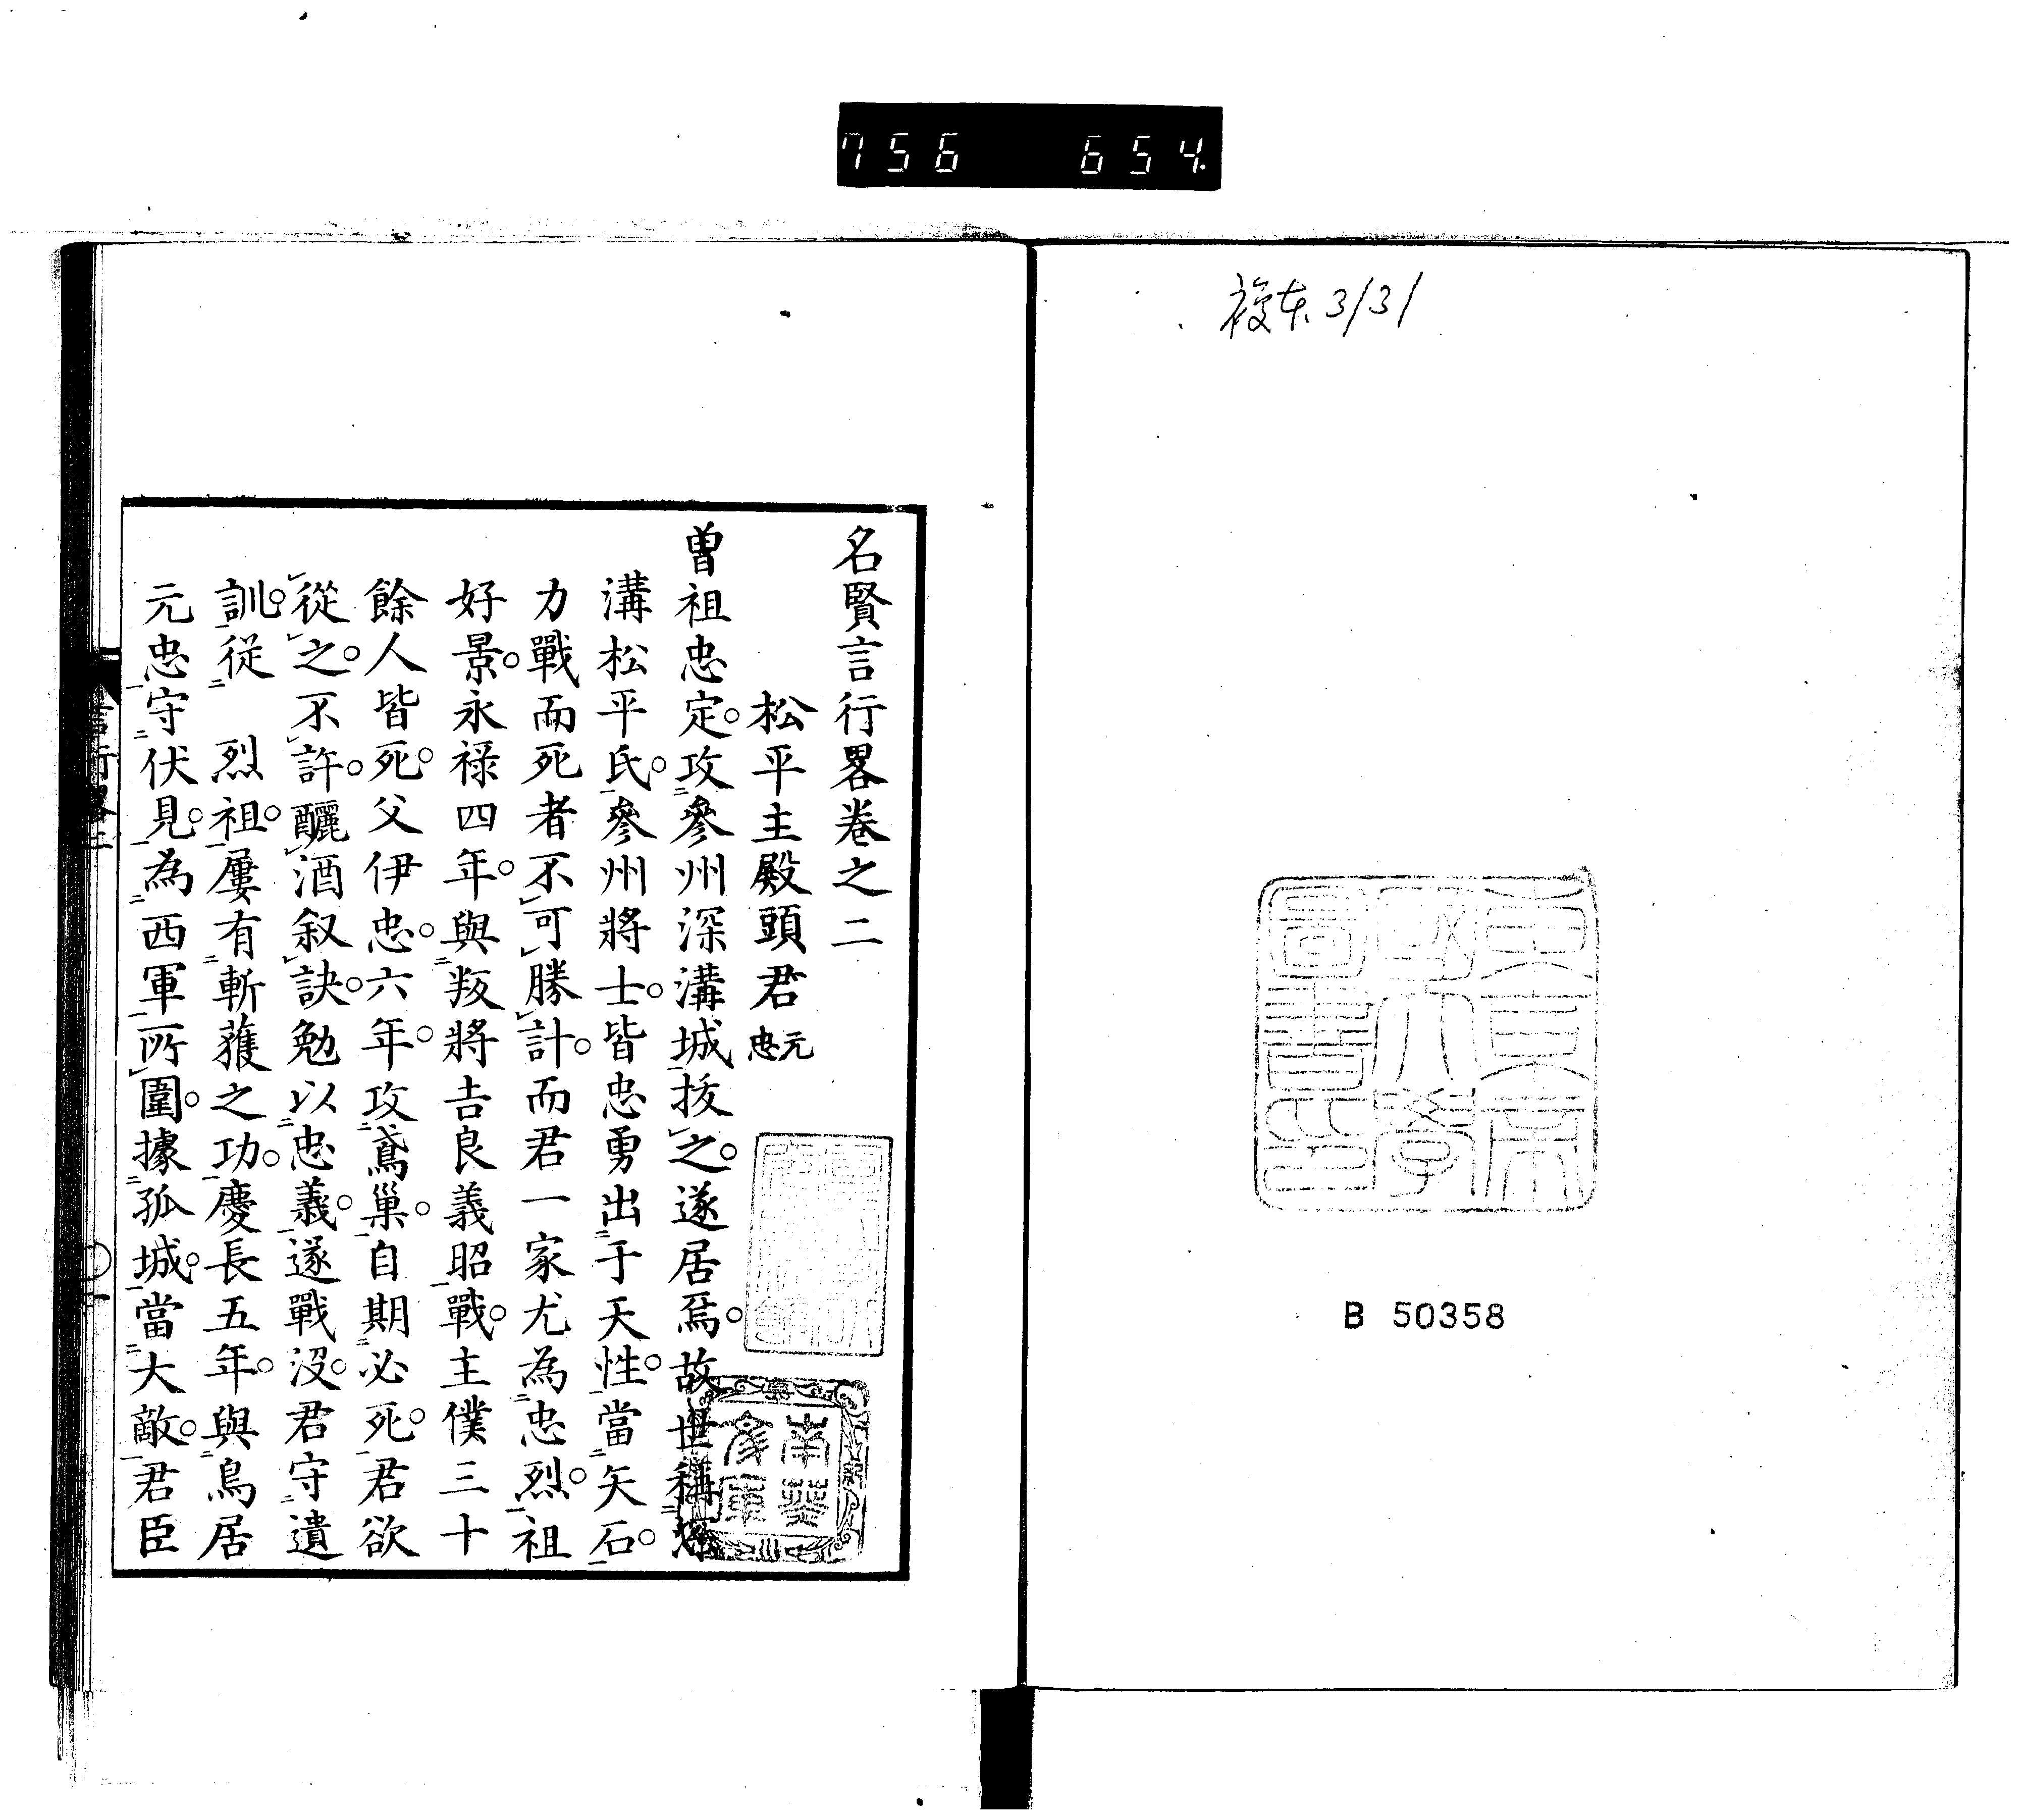 756 654.
複本 3/31
東京帝
國大學
圖書印
B 50358
名賢言行畧卷之二
松平主殿頭君 元忠
曽祖忠定。攻參州深溝城拔之。遂居焉。故世稱深
溝松平氏。參州將士。皆忠勇出于天性。當矢石。
力戰而死者不可勝計。而君一家尤為忠烈。祖
好景。永禄四年。與叛將吉良義昭戰。主僕三十
餘人皆死。父伊忠。六年。攻鳶巢。自期必死。君欲
從之。不許。釃酒叙訣。勉以忠義。遂戰沒。君守遺
訓。從 烈祖。屢有斬獲之功。慶長五年。與鳥居
元忠守伏見。為西軍所圍。據孤城。當大敵。君臣
言行畧二
一
南葵
文庫